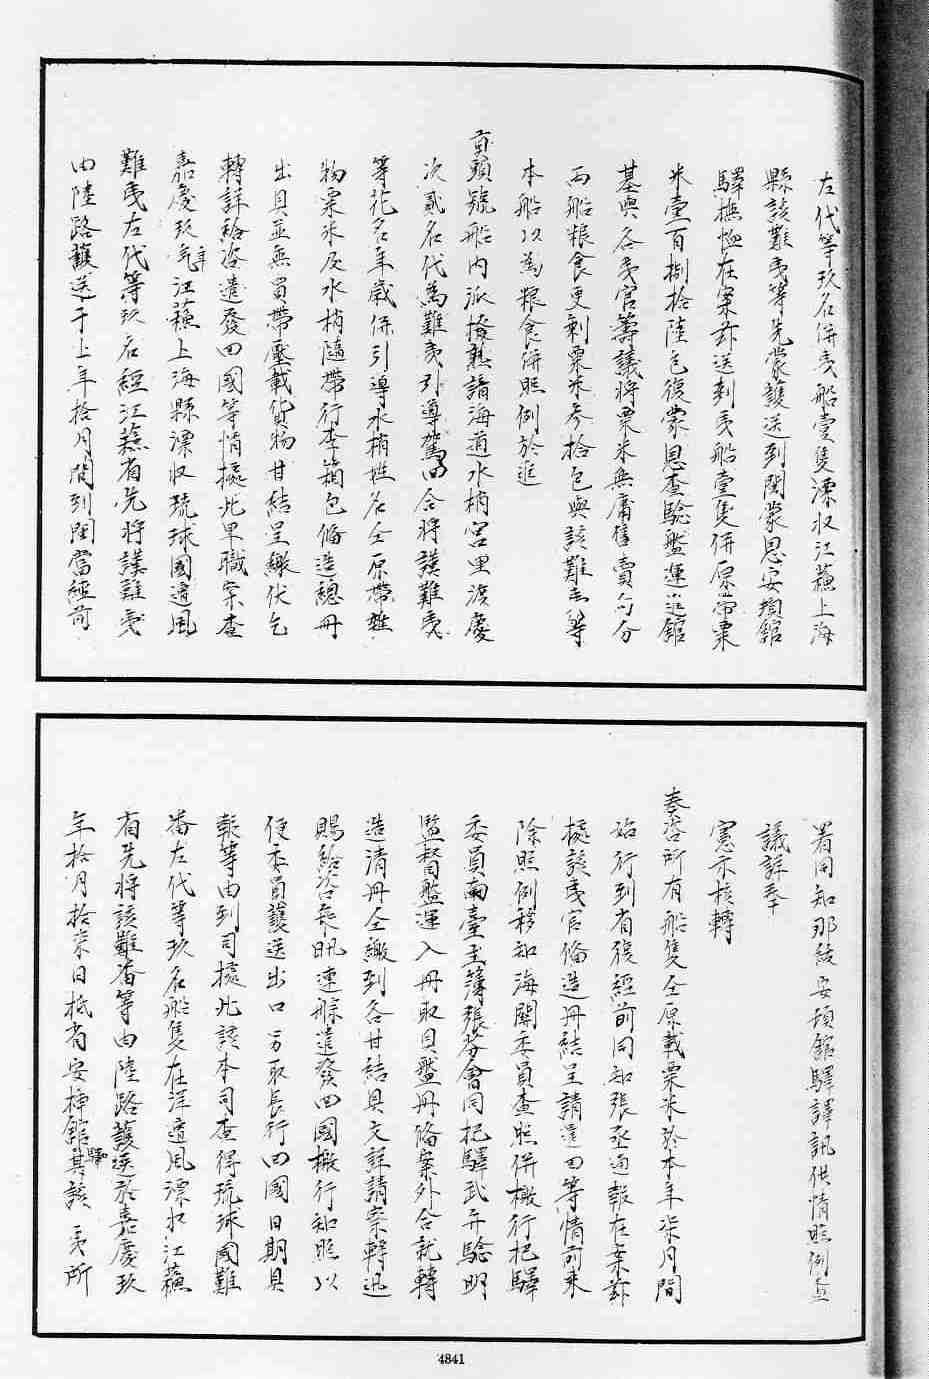 左代等玖名併夷船壹隻漂收江蘇上海
縣該難夷等先蒙護送到閩蒙恩安頓館
驛撫恤在案茲送到夷船壹隻併原帶粟
米壹百捌拾陸包復蒙恩查驗盤運進館
基與各夷官籌議將粟米無庸售賣勻分
兩船粮食更剩粟米參拾包與該難夷等
本船以為粮食併照例於進
貢頭號船內派撥熟諳海道水梢宮里渡慶
次貳名代為難夷引導駕回合將該難夷
等花名年歲併引導水梢姓名仝原帶雜
物粟米及水梢隨帶行李箱包俻造總冊
出具並無買帶壓載貨物甘結呈繳伏乞
轉詳給咨遣發回國等情據此卑職案查
嘉慶玖年江蘇上海縣漂收琉球國遭風
難夷左代等玖名經江蘇省先將該難夷
由陸路護送于上年拾月間到閩當經前
署同知那綾安頓館驛譯訊供情照例查
議詳奉
憲示核轉
奏咨所有船隻仝原載粟米於本年柒月間
始行到省復經前同知張丞通報在案茲
據該夷官俻造冊結呈請遣回等情前來
除照例移知海關委員查照併檄行把驛
委員南臺主簿張芬會同把驛武弁驗明
監督盤運入冊取具盤冊俻案外合就轉
造清冊仝繳到各甘結具文詳請案轉迅
賜給咨乘汛連䑸遣發回國檄行知照以
便委員護送出口另取長行回國日期具
報等由到司據此該本司查得琉球國難
番左代等玖名船隻在洋遭風漂收江蘇
省先將該難番等由陸路護送於嘉慶玖
年拾月拾柒日抵省安揷館驛其該夷所
4841